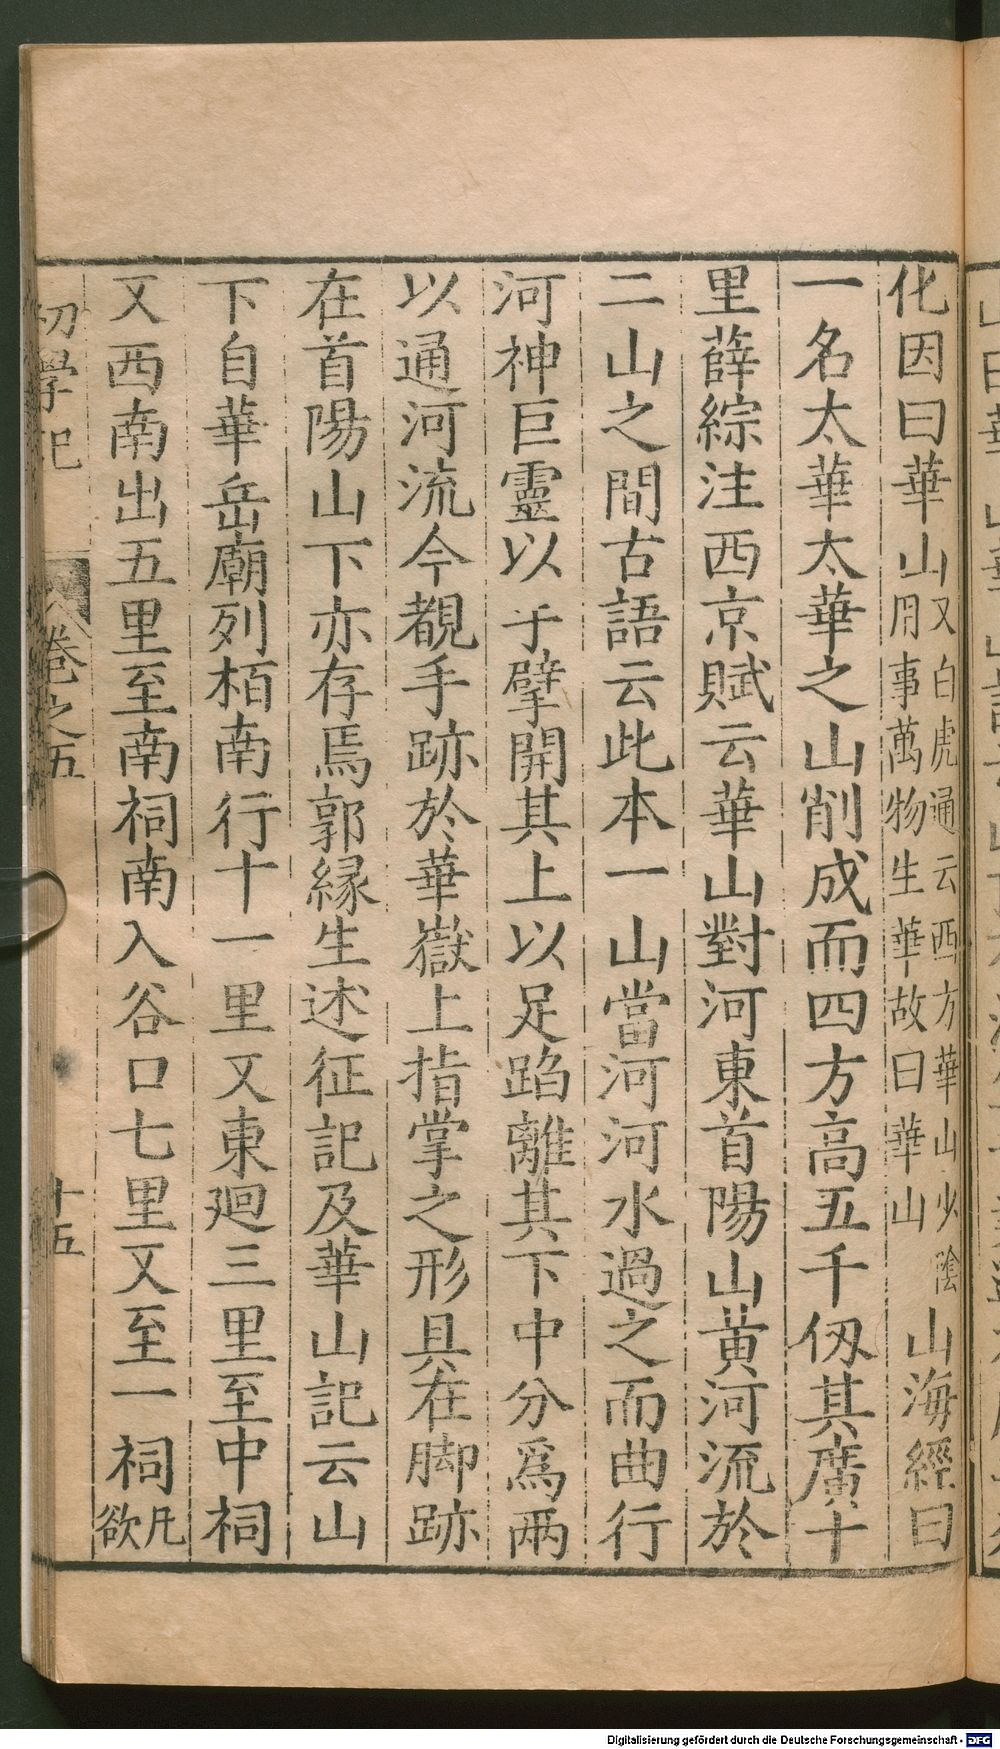 化因曰華山又白虎通云西方華山少陰用事萬物生華故曰華山山海經曰
一名太華太華之山削成而四方高五千仭其廣十
里薛綜注西京賦云華山對河東首陽山黃河流於
二山之間古語云此本一山當河河水過之而曲行
河神巨靈以手擘開其上以足蹈離其下中分爲兩
以通河流今覩手跡於華嶽上指掌之形具在脚跡
在首陽山下亦存焉郭緣生述征記及華山記云山
下自華岳廟列栢南行十一里又東廻三里至中祠
又西南出五里至南祠南入谷口七里又至一祠凡欲
初學記 卷之五 十五
Digitalisierung gefördert durch die Deutsche Forschungsgemeinschaft - DFG